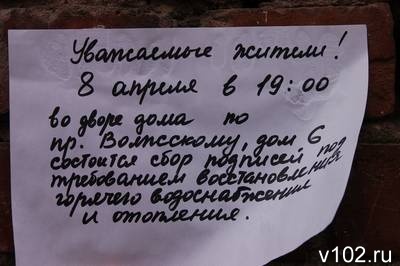 Уважаемые жители!
8 апреля в 19:00
во дворе дома по
пр. Волжскому, дом 6
состоится сбор подписей под
требованием восстановления
горячего водоснабжения
и отопления.
v102.ru